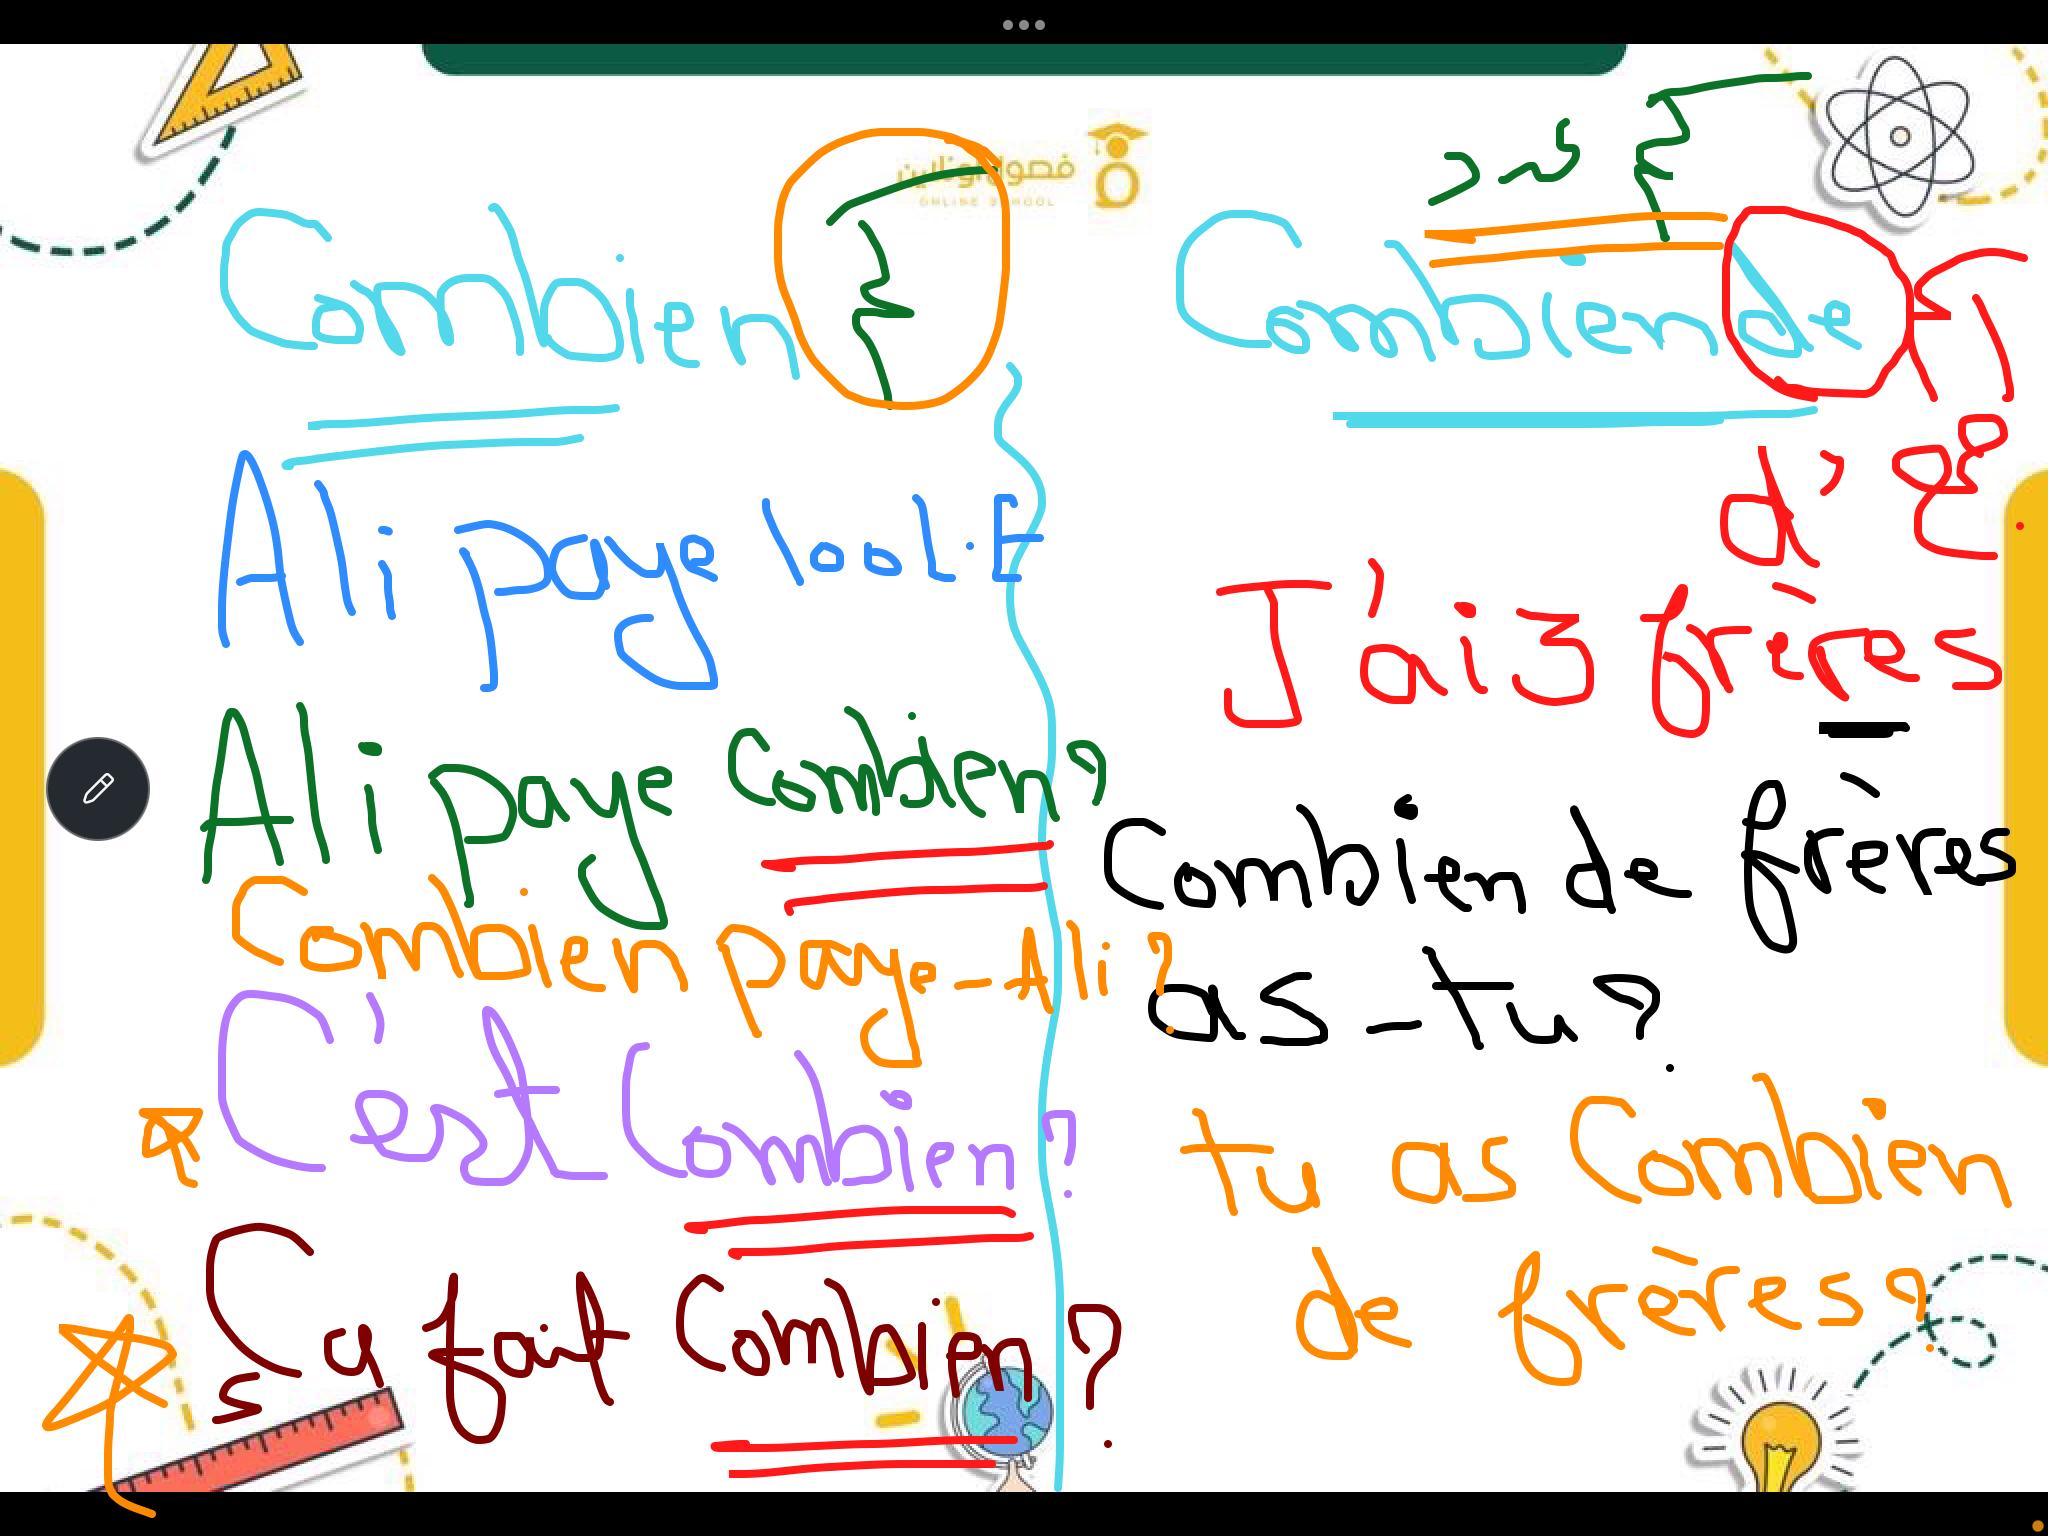 فصول اونلاين
ONLINE SCHOOL
Combien كم
Ali paye 100 L.E
Ali paye Combien?
Combien paye-Ali?
C'est Combien?
Ça fait Combien?
كم عدد
Combien de
d'
J'ai 3 frères
Combien de frères
as-tu?
tu as Combien
de frères?